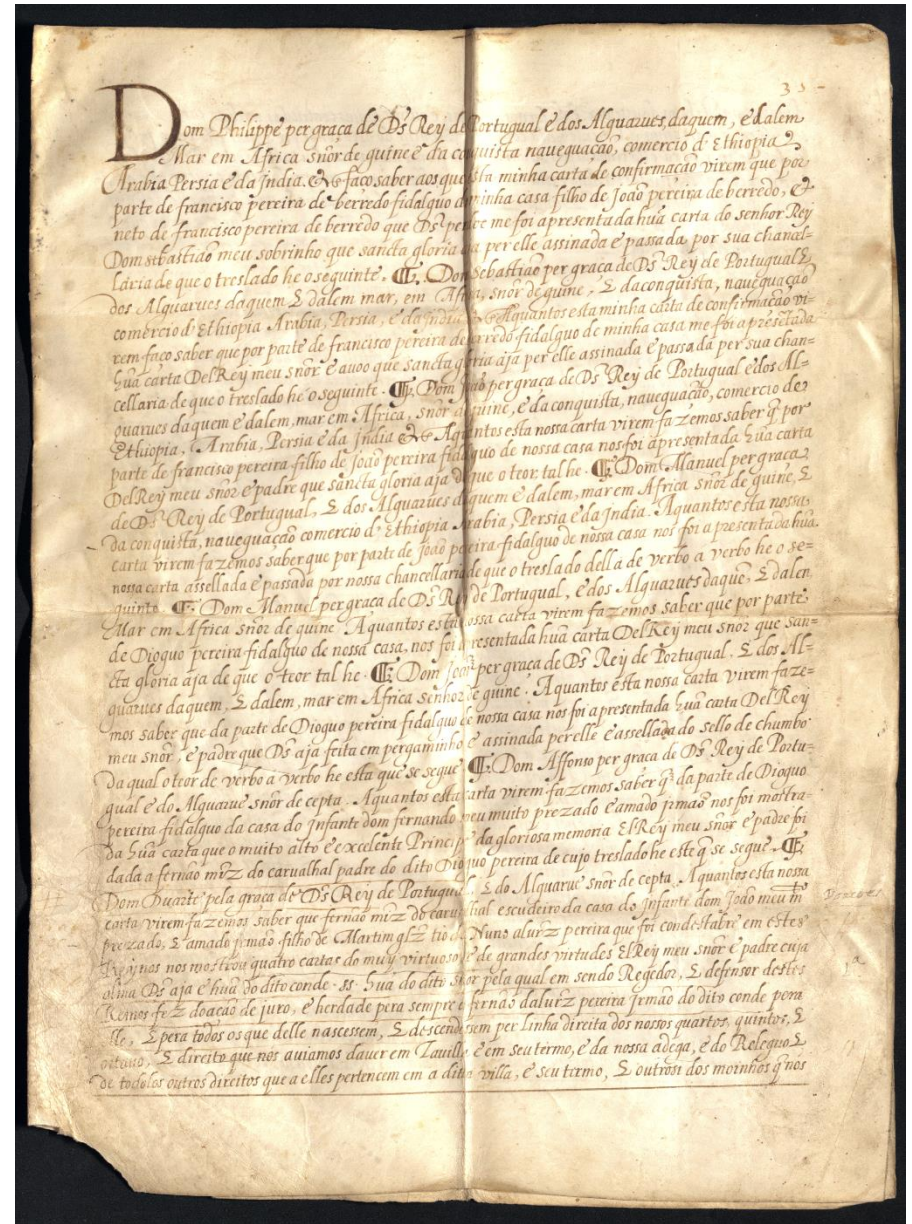 35 -
Dom Philippe per graca de Ds Rey de Portugual e dos Alguarues, daquem, e dalem
Mar em Africa snor de guine e da conquista naueguação, comercio d'Ethiopia
Arabia Persia e da India. &c faco saber aos que esta minha carta de confirmação virem que por
parte de francisco pereira de berredo fidalguo de minha casa filho de João pereira de berredo, &
neto de francisco pereira de berredo que Ds perdoe me foi apresentada hũa carta do senhor Rey
Dom sebastião meu sobrinho que sancta gloria aja per elle assinada e passada por sua chancel=
laria de que o treslado he o seguinte. ¶ Dom Sebastião per graca de Ds Rey de Portugual &
dos Alguarues daquem & dalem mar, em Africa, snor de guine, & da conquista, nauegacão
comercio d'Ethiopia Arabia, Persia, e da India &c Aquantos esta minha carta de confirmacão vi=
rem faco saber que por parte de francisco pereira de berredo fidalguo de minha casa me foi apresẽtada
hũa carta DelRey meu snor e auoo que sancta gloria aja per elle assinada e passada per sua chan=
cellaria de que o treslado he o seguinte. ¶ Dom João per graca de Ds Rey de Portugual e dos Al=
guarues daquem e dalem, mar em Africa, snor de guine, e da conquista, nauegucão, comercio de
Ethiopia, Arabia, Persia e da India &c Aquantos esta nossa carta virem fazemos saber q̃ por
parte de francisco pereira filho de João pereira fidalguo de nossa casa nos foi apresentada hũa carta
DelRey meu snor e padre que sancta gloria aja de que o teor tal he. ¶ Dom Manuel per graca
de Ds Rey de Portugual, & dos Alguarues daquem e dalem, mar em Africa snor de guine, &
da conquista, nauegucão comercio d'Ethiopia Arabia, Persia e da India. Aquantos esta nossa
carta virem fazemos saber que por parte de João pereira fidalguo de nossa casa nos foi apresentada hũa
nossa carta assellada e passada por nossa chancellaria de que o treslado della de verbo a verbo he o se=
guinte. ¶ Dom Manuel per graca de Ds Rey de Portugual, e dos Alguarues daquẽ, & dalen
Mar em Africa snor de guine. Aquantos esta nossa carta virem fazemos saber que por parte
de Dioguo pereira fidalguo de nossa casa, nos foi apresentada hũa carta DelRey meu snor que san=
cta gloria aja de que o teor tal he. ¶ Dom João per graca de Ds Rey de Portugual. & dos Al=
guarues daquem, & dalem, mar em Africa senhor de guine. Aquantos esta nossa carta virem faze=
mos saber que da parte de Dioguo pereira fidalguo de nossa casa nos foi apresentada hũa carta DelRey
meu snor, e padre que Ds aja feita em pergaminho e assinada per elle e assellada do sello de chumbo
da qual o teor de verbo a verbo he esta que se segue. ¶ Dom Affonso per graca de Ds Rey de Portu=
gual e do Alguarue snor de cepta. Aquantos esta carta virem fazemos saber q̃ da parte de Dioguo
pereira fidalguo da casa do Infante dom fernando meu muito prezado e amado jrmaõ nos foi mostra=
da hũa carta que o muito alto e excelente Principe da gloriosa memoria ElRey meu snor e padre foi
dada a fernão miz do carualhal padre do dito Dioguo pereira de cujo treslado he este q̃ se segue. ¶
Dom Duarte pela graça de Ds Rey de Portugual. & do Alguarue snor de cepta. Aquantos esta nossa
carta virem fazemos saber que fernão miz do carualhal escudeiro da casa do Infante dom João meu mto
prezado, & amado jrmão filho de Martim glz tio de Nuno alurz pereira que foi condestabre em estes
Reynos nos mostrou quatro cartas do muy virtuoso, e de grandes virtudes ElRey meu snor e padre cuja
alma Ds aja e hũa do dito conde .ss. hũa do dito snor pela qual em sendo Regedor, & defensor destes
Reinos fez doacão de juro, e herdade pera sempre a fernão daluarz pereira Irmão do dito conde pera
elle, & pera todos os que delle nascessem, & descendessem per linha direita dos nossos quartos, quintos, &
oitauo, & direito que nos auiamos dauer em Tauilla e em seu termo, e da nossa adega, e do Releguo &
de todolos outros direitos que a elles pertencem em a dita villa, e seu termo, & outrosi dos moinhos q̃ nos
1ª